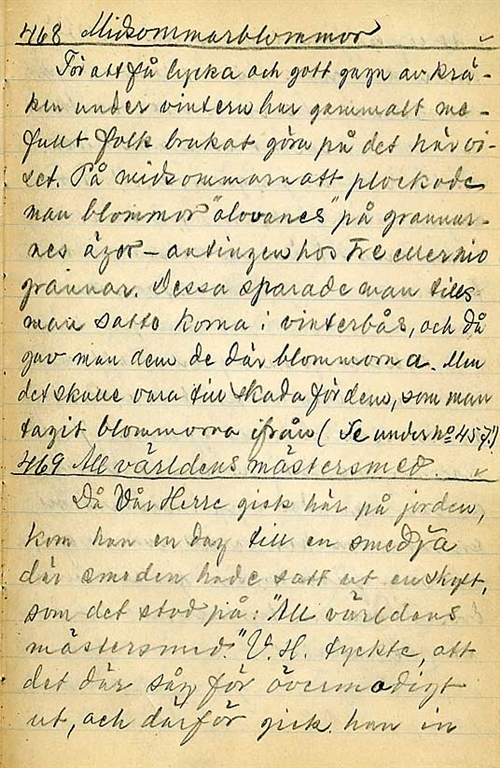 468 Midsommarblommor
För att få lycka och gott gagn av krä-
ken under vintern har gammalt
folk brukat göra på det här vi-
set. På midsommarnatt plockade
man blommor "olovanes" på grannar-
nes ägor - antingen hos tre eller nio
grannar. Dessa sparade man tills
man satte korna i vinterbås, och då
gav man dem de där blommorna. Men
det skulle vara till skada för dem, som man
tagit blommorna ifrån (Se under No 457!)
469 All världens mästersmed
Då Vår Herre gick här på jorden,
kom han en dag till en smedja
där smeden hade satt ut en skylt,
som det stod på: "All världens
mästersmed." V. H. tyckte, att
det där såg för övermodigt
ut, och därför gick han in